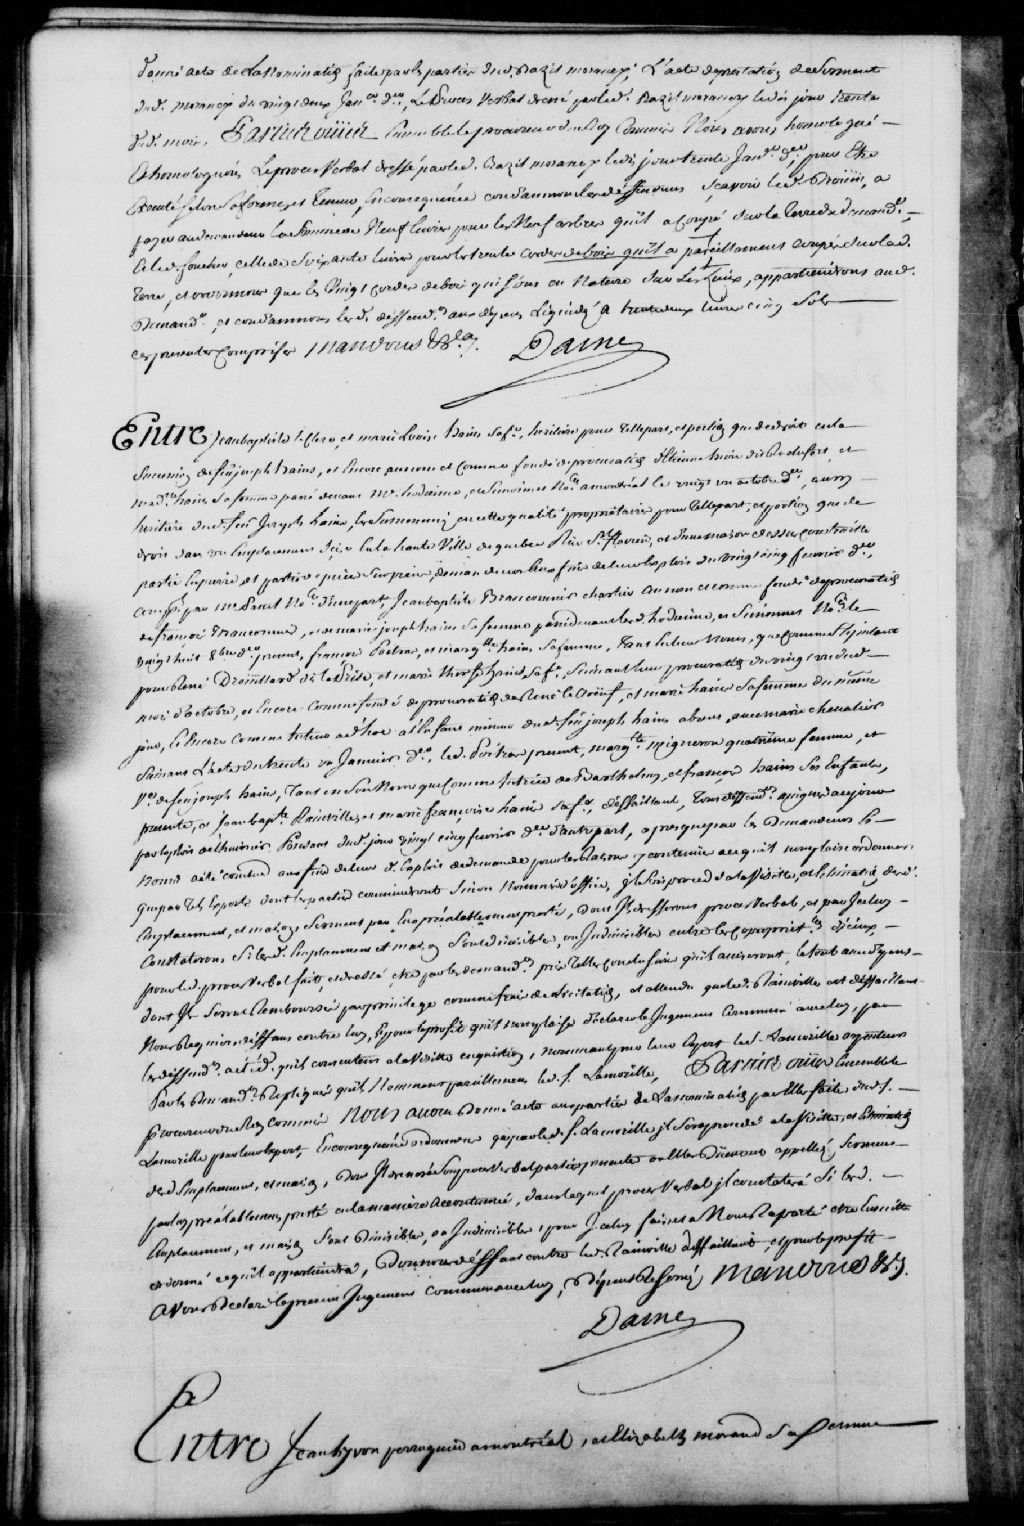 donné acte de la Nomination faite par les parties dud. Bazil moraneix; L'acte de prestation de Serment
dud. moraneix du vingt deux Janer. der., Le Proces Verbal dressé par led. Bazil moraneix led. jour trente
dud. mois, Partie ouïes Ensemble le procureur du Roy Commis Nous avons homologué
Et homologons Le proces Verbal dressé par led. Bazil moraneix led. jour trente Janer. der. pour Etre
Executé selon Sa forme et Teneur, En consequence condamnons les deffendeurs, sçavoir led. Drouin, a
payer au demandeur la Somme de Neuf livres pour les Neuf arbres qu'il a Coupé sur la terre du demandr.
Et led. foucher, celle de Soixante livres pour les trente cordes de bois qu'il a pareillement coupé sur lad.
Terre, et ordonnons que les Vingt cordes de bois qui sont en Nature Sur Les Lieux, appartiendront aud.
Demandr. et condamnons lesd. deffendrs. aux depens Liquidés a trente deux livres cinq Sols
ces presentes Comprises Mandons &ca.
Daine
Entre Jean baptiste Leclerc, et marie Louise hains Sa fe., heritiere pour telle part, et portion que de droit en la
Succession de feu joseph hains, et Encore au nom et Comme fondé de procuration d'Etienne
made. hains Sa femme passé devant Me. hodiesne, et Simonnet Nores. a montréal le vingt un octobre der., aussy
heritiere dud. feu Joseph hains, Les Susnommés en cette qualité proprietaire pour telle part, et portion que de
droit dans un Emplacement Scis en la haute Ville de quebec Rüe St. flavien, et d'une maison dessus construitte
partie en pierre, et partie en piece sur piece, demandeurs aux fins de leur Exploit du vingt cinq fevrier der.
d'une part, Jean baptiste Brancommier chartier au nom et comme fondé de procuration
de françois Francoeur, et marie joseph hains Sa femme passé devant led. hodiesne, et Simonnet Nores. le
vingt huit 8bre. der. present, françois Poitras, et margte. hains Sa femme, Tant en leur Noms, que comme Stipulant
pour René Drouillard dit la Prise, et marie therese hains Sa fe., Suivant leur procuration du vingt un dud.
mois d'octobre, et Encore comme fondé de procuration de René le Boeuf, et marie hains Sa femme du même
jour, Et Encore comme tuteur ad hoc a l'enfant mineur dud. feu joseph hains absens, avec marie chevalier
Suivant L'acte du trente un Janvier der., led. Poitras present, margte. migneron quatrieme femme, et
Ve. de feu joseph hains, Tant en Son Nom que Comme tutrice de Barthelemy, et françois hains Ses Enfants,
presente, et Jean bapte. Rainville et marie françoise hains Sa fe., deffaillant, Tous deffendrs. assignés au jour
par Exploit de l'huissier dud. jour vingt cinq fevrier der. d'autre part, apres que par les Demandeurs En
Nom a été conclud aux fins de leur d. Exploit de demande pour les Raisons y contenues a ce qu'il nous plaise ordonner
que par tels Experts dont les parties conviendront Sinon Nommés d'office, jl Sera procedé a la Visitte, et Estimation desd.
Emplacement, et maison, Serment par Eux prealablement presté, dont jls dresseront proces Verbal, et par jceluy
Constateront Si lesd. Emplacement et maison Sont divisible, ou Indivisible entre les Coproprietres. d'jceux,
pour led. proces Verbal fait, et dressé être par les demandrs. pris telles Conclusions qu'ils aviseront, le tout aux depens
dont jls Seront Remboursés par privilege comme frais de licitation, et attendu que led. Rainville est deffaillant
Nous Requierent deffaut contre luy, Et pour le profit qu'il nous plaise declarer le Jugement Commun avec luy, par
les deffendrs. a été d. qu'ils consentent a la Visitte en question, nommant pour leur Expert le S. Lamorille arpenteur
Par les Demandrs. Repliqué qu'ils Nomment pareillement led. S. Lamorille, Partie ouïes Ensemble le
Procureur du Roy Commis Nous avons donné acte aux parties de la nomination par Elles faite dud. S.
Lamorille pour leur Expert, En consequence ordonnons que par led. S. Lamorille jl Sera procedé a la Visitte, et Estimation
desd. Emplacement, et maison, dont jl dressera Son proces Verbal parties presentes ou Elles Düement appellées Serment
par luy prealablement presté en la maniere accoutumée, dans lequel proces Verbal jl constatera Si lesd.
Emplacement, et maison Sont Divisible, ou Indivisible, pour Jceluy fait et a Nous Raporté être Ensuitte
ordonné ce qu'il appartiendra, Donnons deffaut contre led. Rainville deffaillant, et pour le profit
Avons Declaré le present Jugement Commun avec luy, Dépens Reservés Mandons &ca.
Daine
Entre Jean hyvon perruquier a montréal, et Elizabeth morand Sa femme